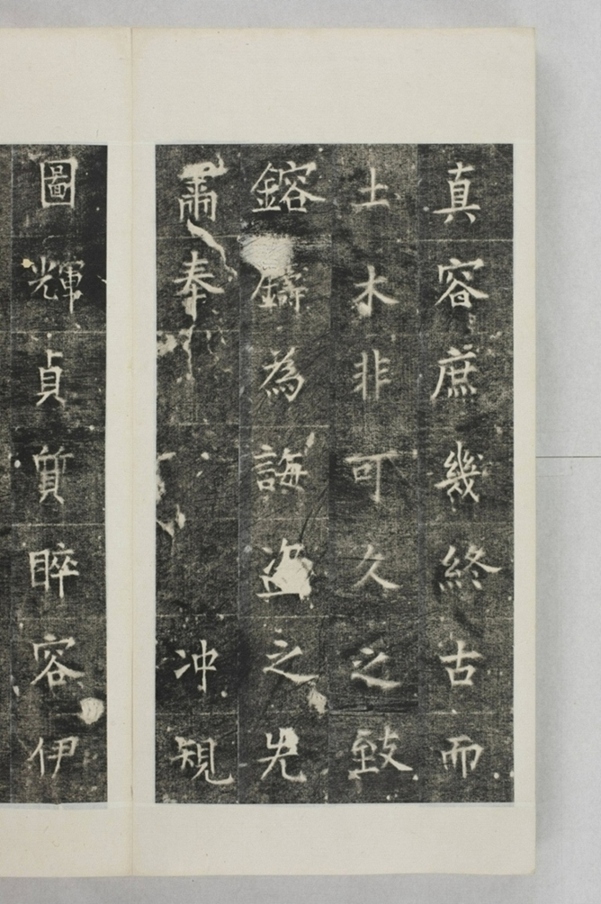 真容庶幾終古而
土木非可久之致
鎔鑄為誨盜之先
肅奉冲規
圖輝貞質睟容伊